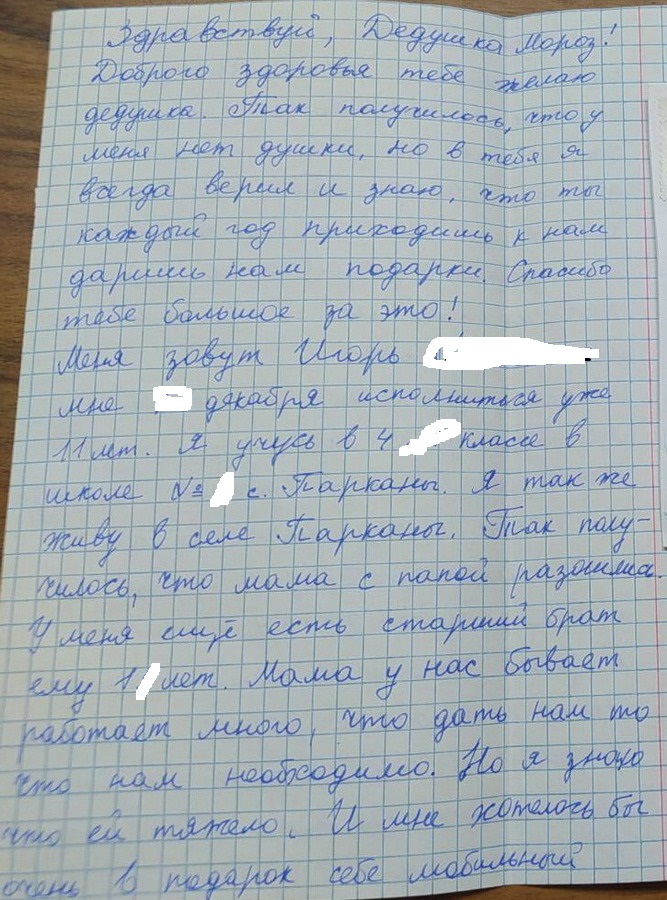 Здравствуй, Дедушка Мороз!
Доброго здоровья тебе желаю
дедушка. Так получилось, что у
меня нет душки, но в тебя я
всегда верил и знаю, что ты
каждый год приходишь к нам
даришь нам подарки. Спасибо
тебе большое за это!
Меня зовут Игорь
мне декабря исполниться уже
11 лет. Я учусь в 4 классе в
школе № с. Парканы. Я так же
живу в селе Парканы. Так полу-
чилось, что мама с папой разошлись.
У меня ещё есть старший брат
ему 1 лет. Мама у нас бывает
работает много, что дать нам то
что нам необходимо. Но я знаю
что ей тяжело. И мне хотелось бы
очень в подарок себе мобильный